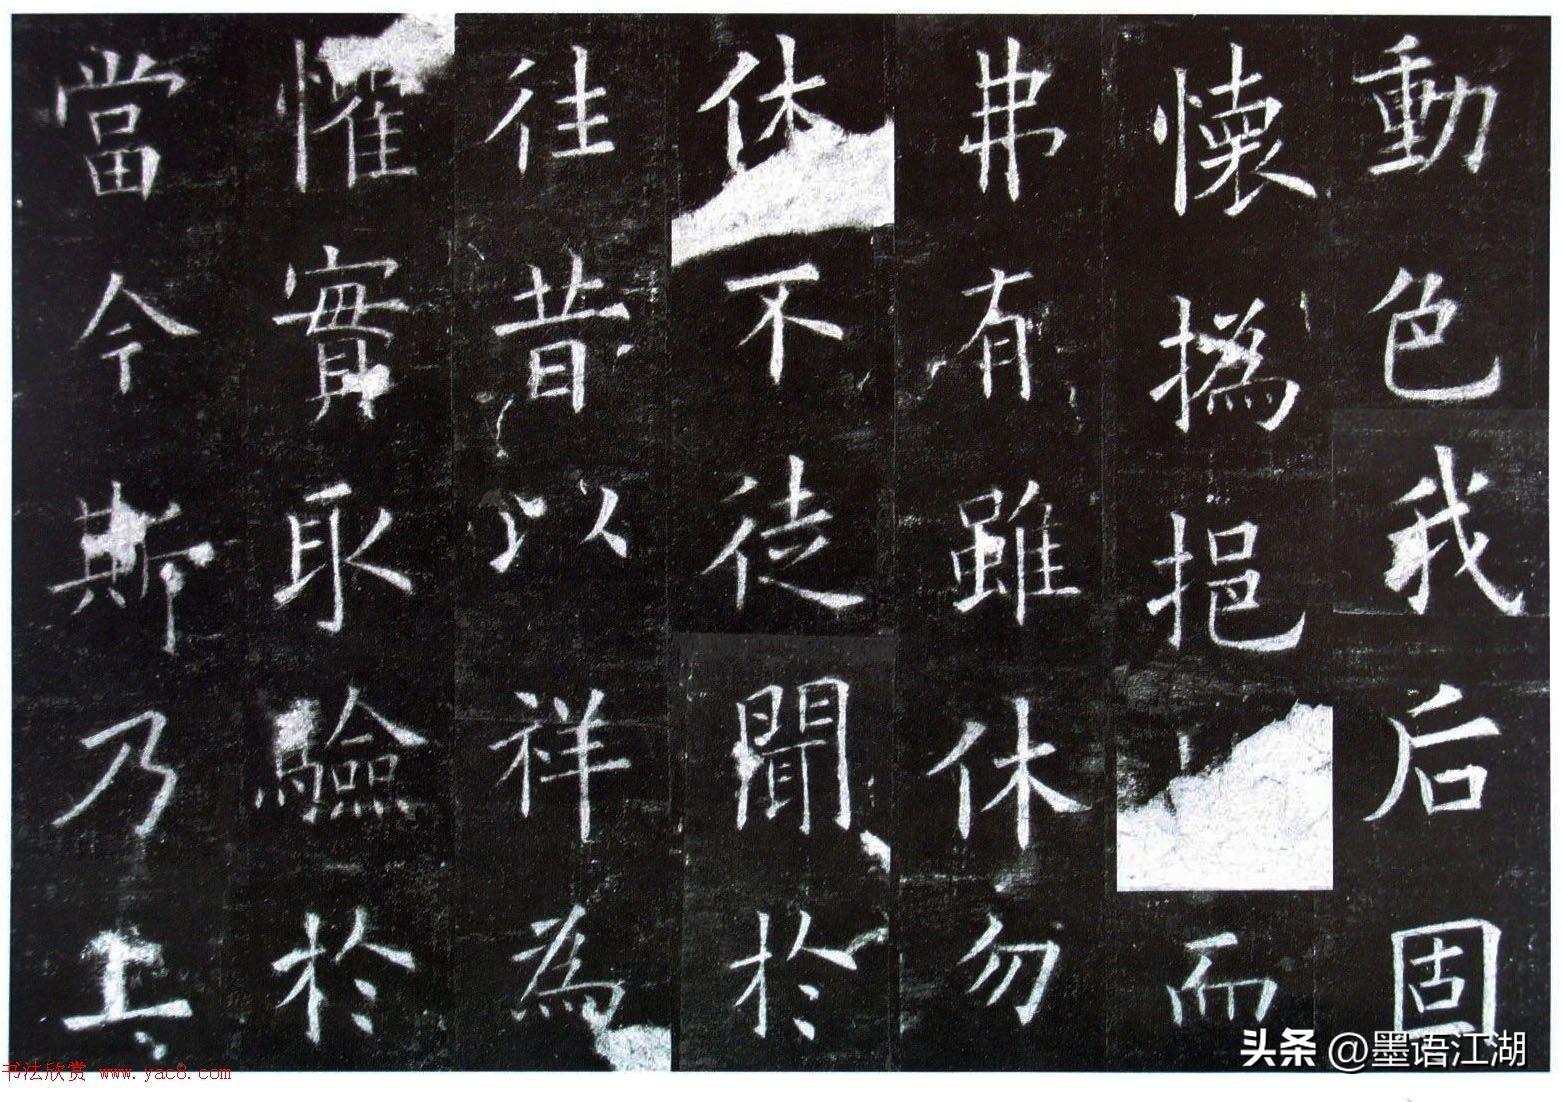 動色我后固
懷撝挹而
弗有雖休勿
休不徒聞於
往昔以祥為
懼實取驗於
當今斯乃上
书法欣赏 www.yac8.com
头条 @墨语江湖